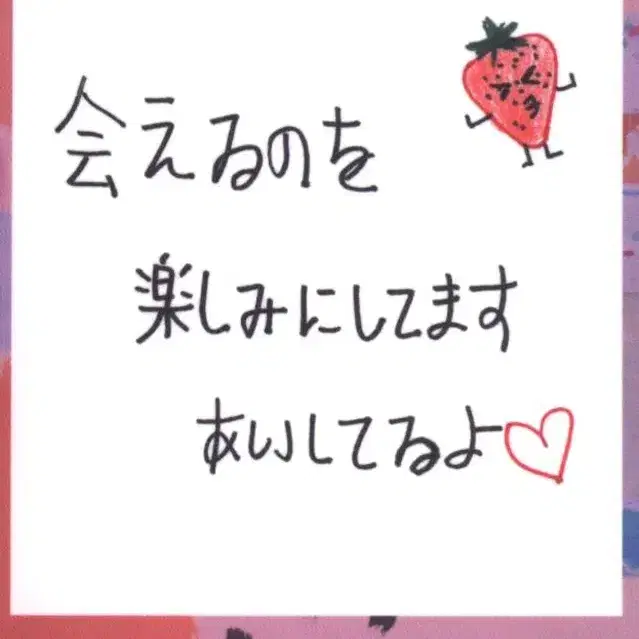 会えるのを
楽しみにしてます
あいしてるよ♡